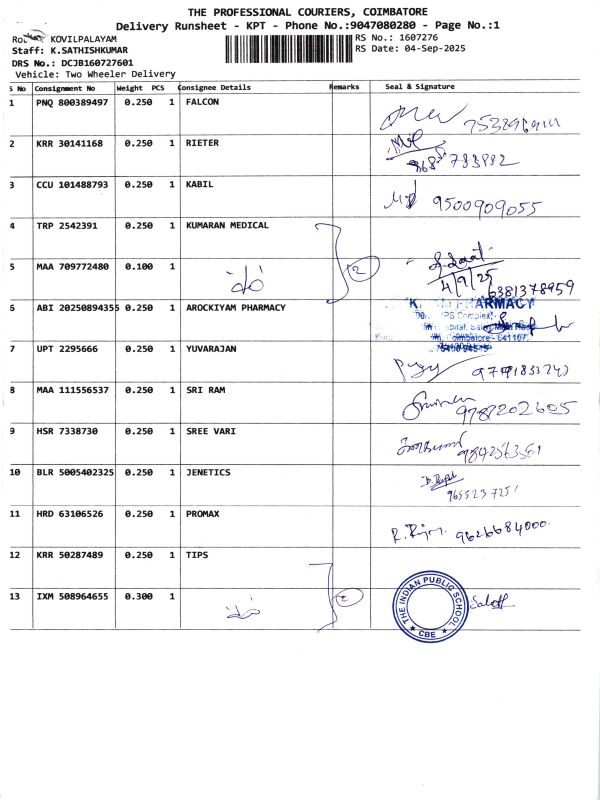 THE PROFESSIONAL COURIERS, COIMBATORE
Delivery Runsheet - KPT - Phone No.:9047080280 - Page No.:1
KOVILPALAYAM
RS No.: 1607276
Staff: K.SATHISHKUMAR
RS Date: 04-Sep-2025
DRS No.: DCJB160727601
Vehicle: Two Wheeler Delivery
S No Consignment No Weight PCS Consignee Details Remarks Seal & Signature
1 PNQ 800389497 0.250 1 FALCON
2 KRR 30141168 0.250 1 RIETER
3 CCU 101488793 0.250 1 KABIL
9500909055
4 TRP 2542391 0.250 1 KUMARAN MEDICAL
5 MAA 709772480 0.100 1
2
4/9/25
6381378959
6 ABI 20250894355 0.250 1 AROCKIYAM PHARMACY
PHARMACY
Coimbatore - 641107
7 UPT 2295666 0.250 1 YUVARAJAN
8 MAA 111556537 0.250 1 SRI RAM
9787202605
9 HSR 7338730 0.250 1 SREE VARI
9842563561
10 BLR 5005402325 0.250 1 JENETICS
9655237251
11 HRD 63106526 0.250 1 PROMAX
9626684000
12 KRR 50287489 0.250 1 TIPS
13 IXM 508964655 0.300 1
2
THE INDIAN PUBLIC SCHOOL
CBE